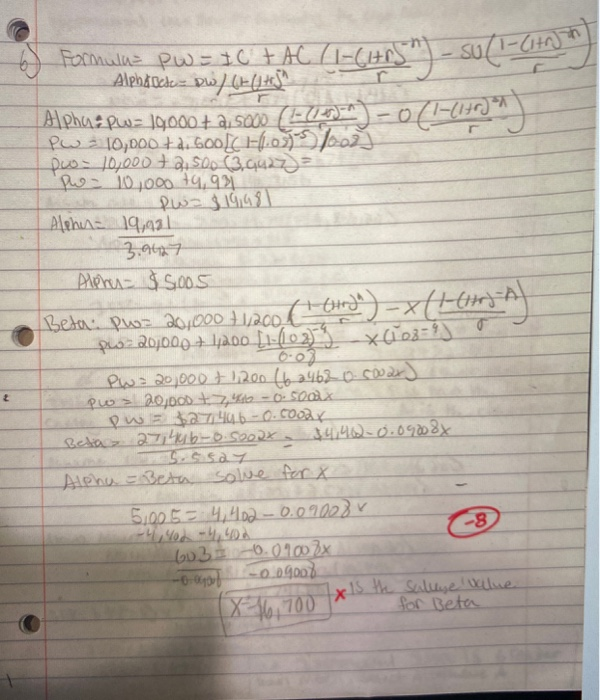 6) Formula = PW = IC + AC (1-(1+r)^-n / r) - SU (1-(1+r)^-n / r)
PW / (1-(1+r)^n / r
Alpha: PW = 10,000 + 2,5000 (1-(1+r)^-n / r) - 0 (1-(1+r)^-n / r)
PW = 10,000 + 2,500 [(1-(1.08)^-5) / 0.08]
PW = 10,000 + 2,500 (3.9927) =
PW = 10,000 + 9,981
PW = $19,981
Alpha = 19,981
3.9927
Alpha = $5,005
Beta: PW = 20,000 + 1,200 (1-(1+r)^n / r) - x (1-(1+r)^-n / r)
PW = 20,000 + 1,200 [1-(1.08)^-9 / 0.08] - x (1.08^-9)
PW = 20,000 + 1,200 (6.2463 - 0.5002x)
PW = 20,000 + 7,446 - 0.5002x
PW = $27,446 - 0.5002x
Beta = 27,446 - 0.5002x = $4,402 - 0.09008x
5.5527
Alpha = Beta solve for x
5,005 = 4,402 - 0.09008x
-4,402 -4,402
603 = -0.09008x
-0.09008 -0.09008
-8
x = -6,700 x is the salvage value
for Beta